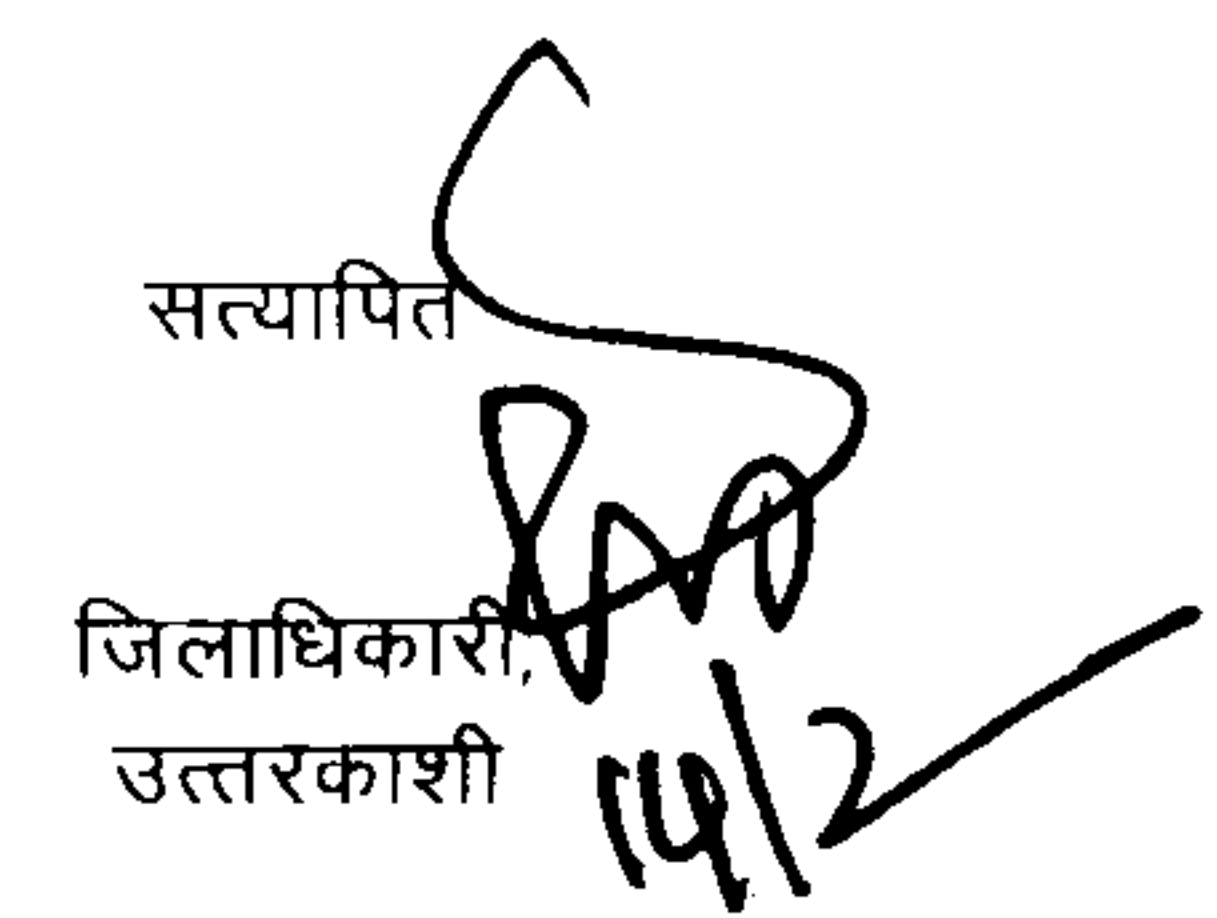 सत्यापित
जिलाधिकारी,
उत्तरकाशी
14/2